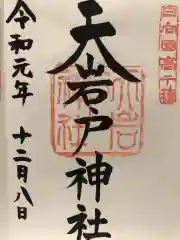 日向國高千穂
天岩戸神社
令和元年
十二月八日